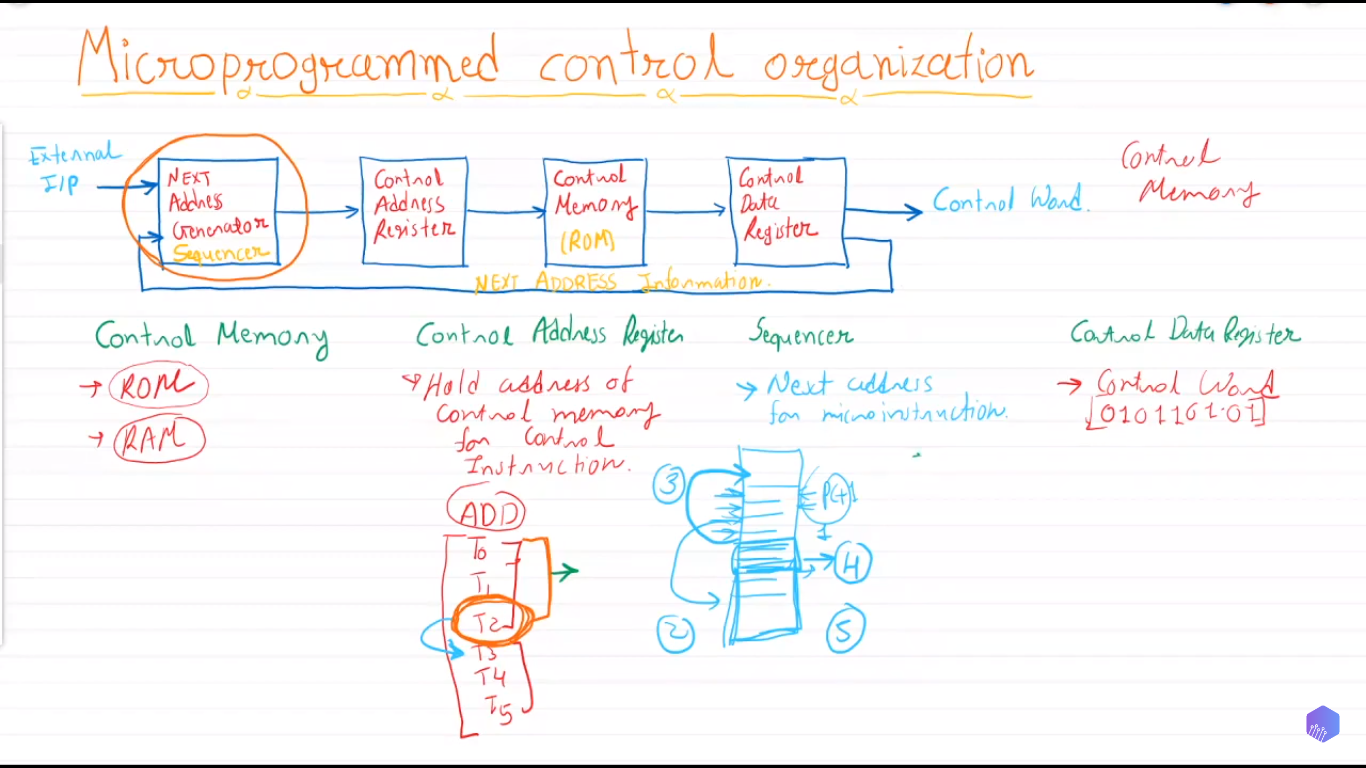 Microprogrammed control organization
External
I/P
NEXT
Address
Generator
Sequencer
Control
Address
Register
Control
Memory
(ROM)
Control
Data
Register
Control Word.
Control
Memory
NEXT ADDRESS Information.
Control Memory
→ ROM
→ RAM
Control Address Register
Hold address of
control memory
for Control
Instruction.
ADD
T0
T1
T2
T3
T4
T5
Sequencer
→ Next address
for microinstruction.
3
PC+1
1
4
2
5
Control Data Register
→ Control Word
[0101101·01]